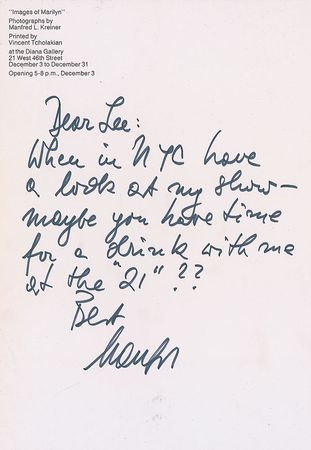 "Images of Marilyn"
Photographs by
Manfred L. Kreiner
Printed by
Vincent Tcholakian
at the Diana Gallery
21 West 46th Street
December 3 to December 31
Opening 5-8 p.m., December 3
Dear Lee:
When in NYC have
a look at my show—
maybe you have time
for a drink with me
at the "21" ??
Best